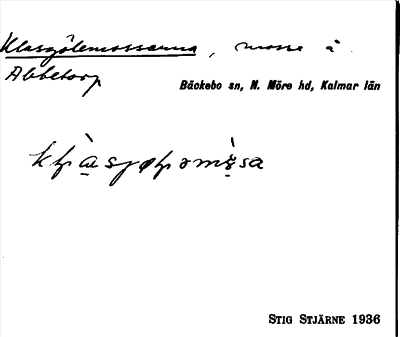 Klasgölemossarna, mosse å
Abbetorp
Bäckebo sn, N. Möre hd, Kalmar län
STIG STJÄRNE 1936